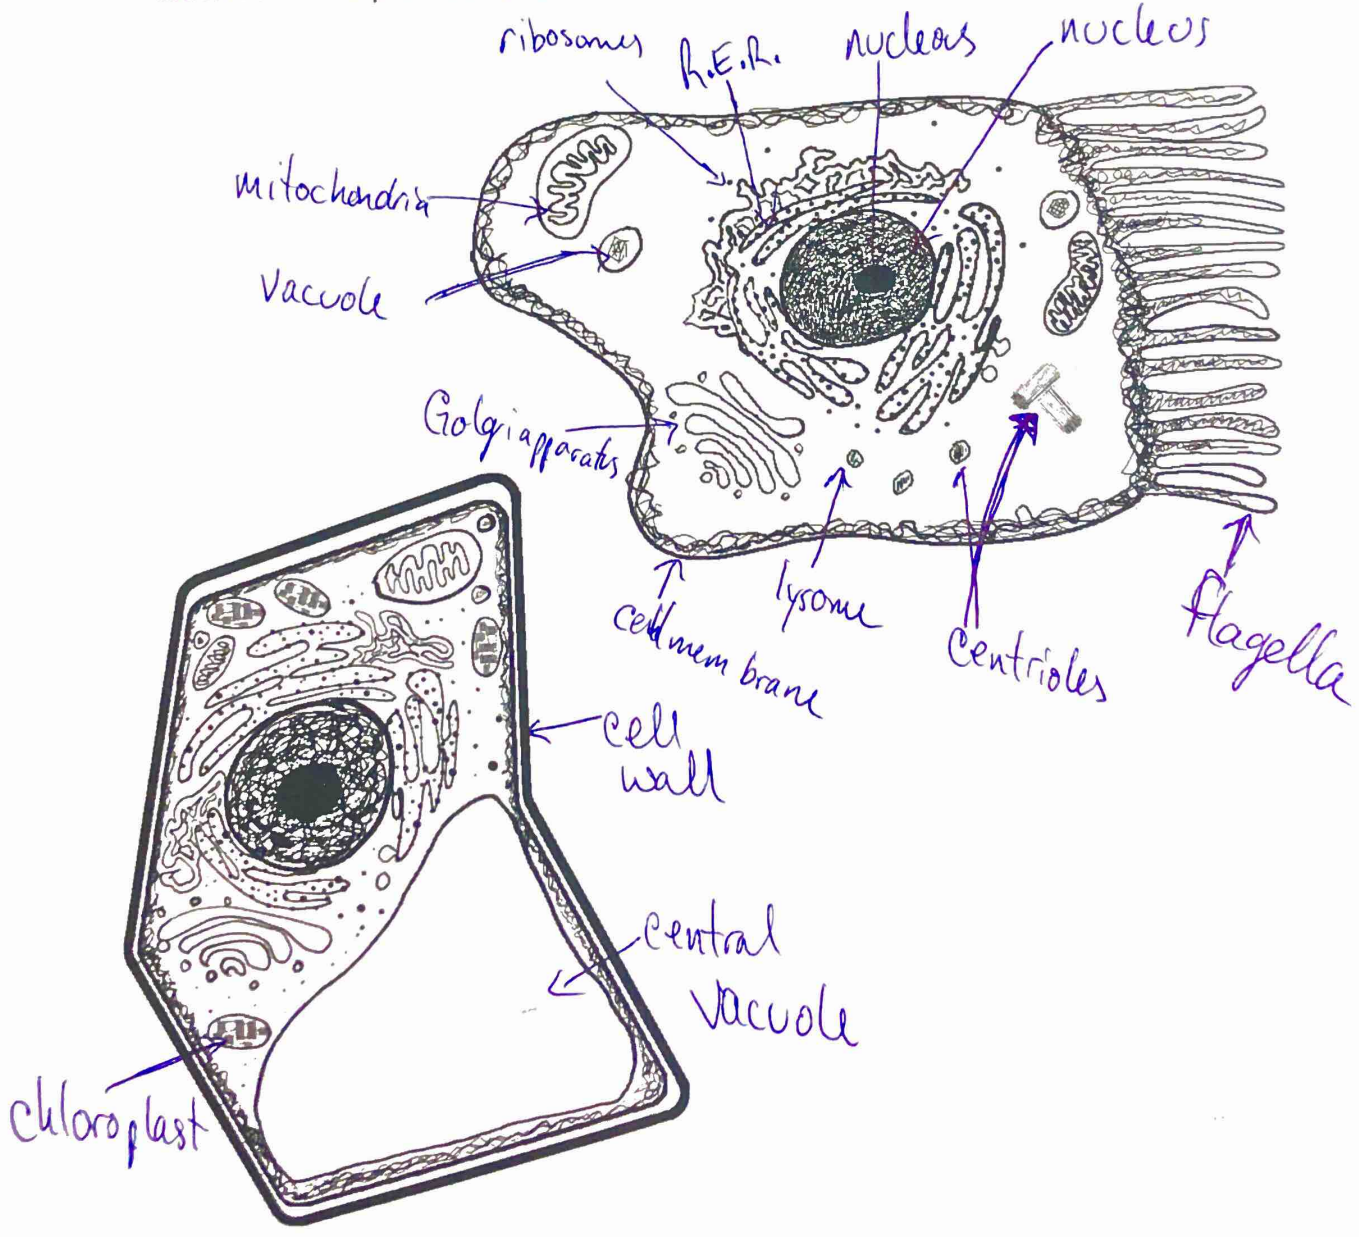 ribosomes
R.E.R.
nucleous
nucleus
mitochondria
vacuole
Golgi apparatus
lysome
cell membrane
centrioles
flagella
cell
wall
central
vacuole
chloroplast